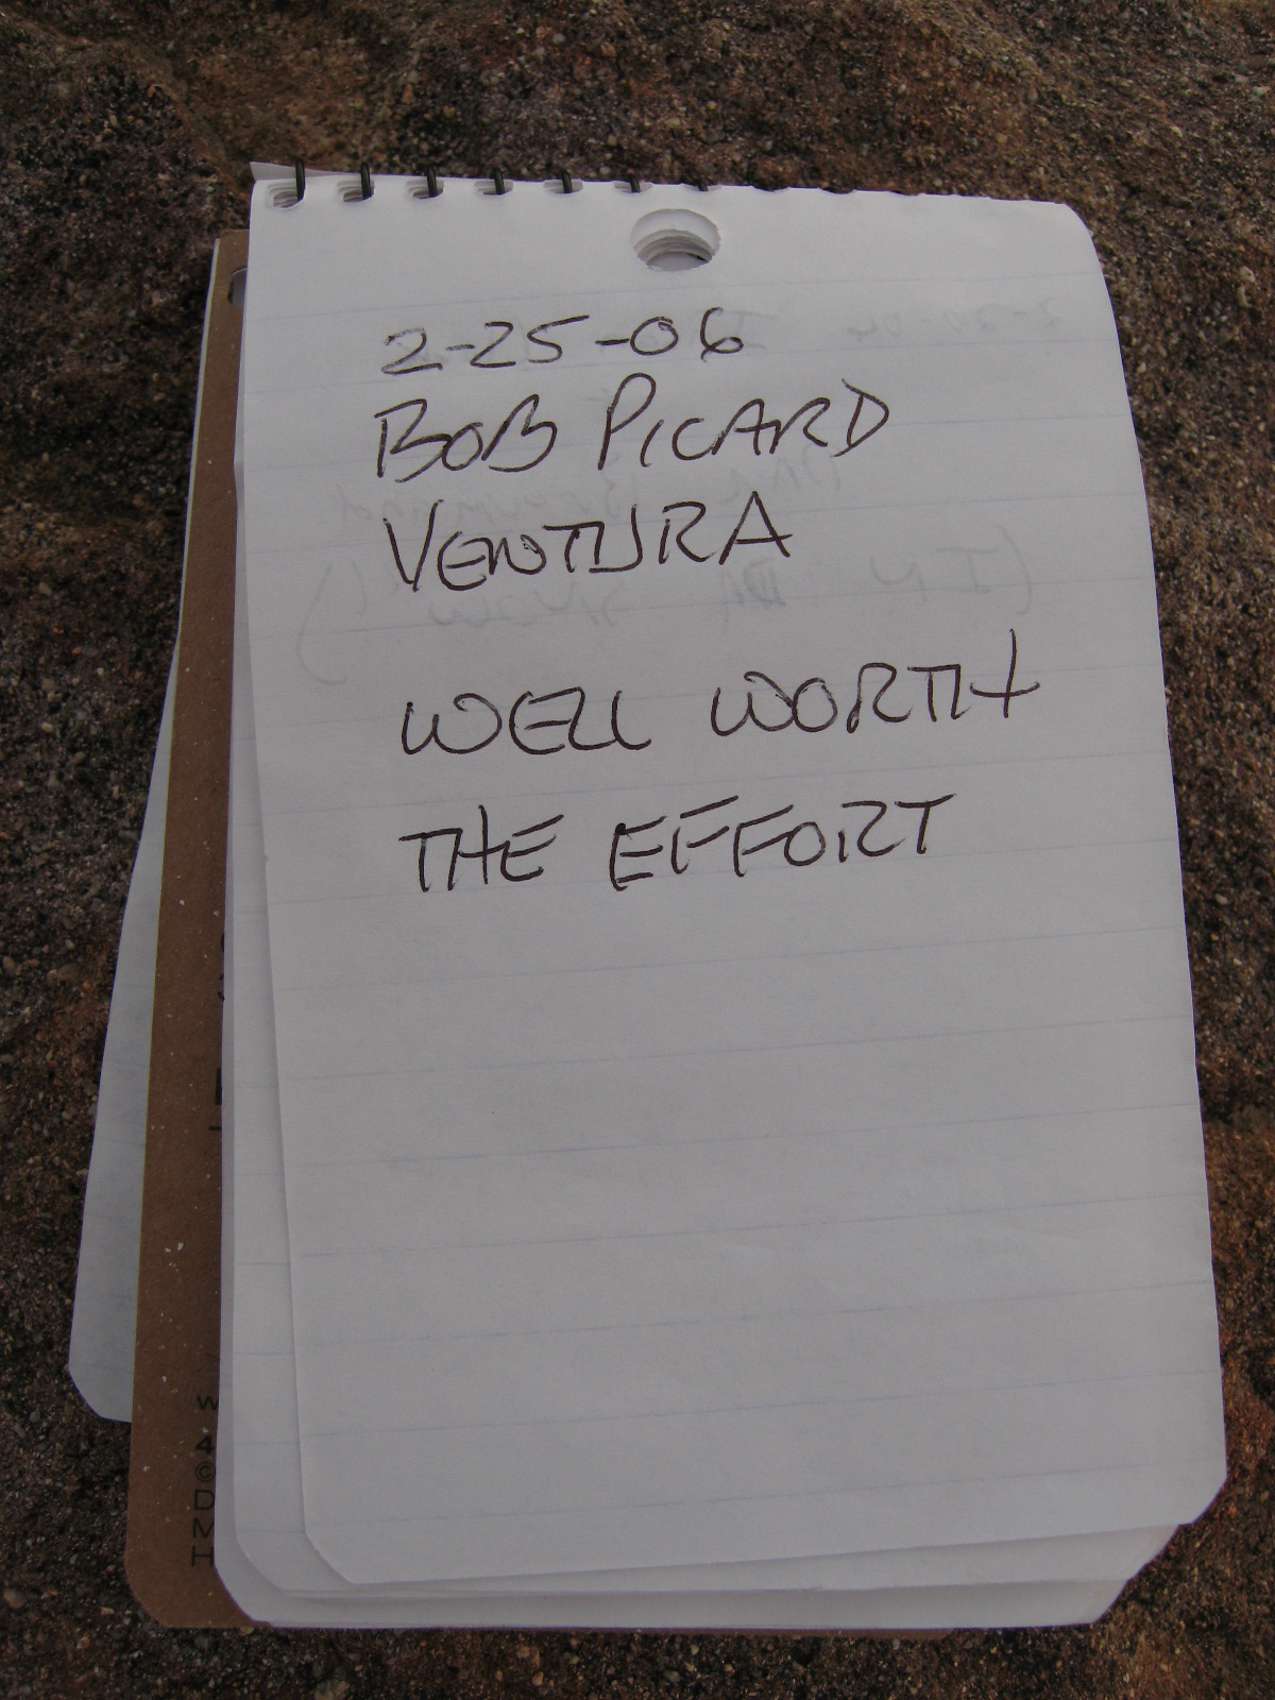 2-25-06
BOB PICARD
VENTURA
WELL WORTH
THE EFFORT
W
4
©
D
M
H